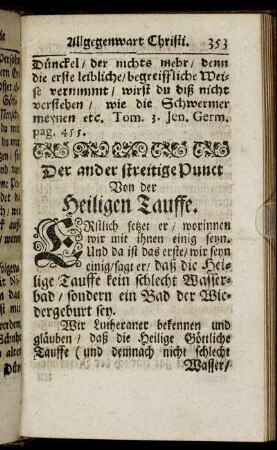 Allgegenwart Christi. 353
Dünckel / der nichts mehr / denn
die erste leibliche / begreiffliche Wei-
se vernimmt / wirst du diß nicht
verstehen / wie die Schwermer
meynen etc. Tom. 3. Jen. Germ.
pag. 455.
Der ander streitige Punct
Von der
Heiligen Tauffe.
ERstlich setzet er / worinnen
wir mit ihnen einig seyn.
Und da ist das erste / wir seyn
einig / sagt er / daß die Hei-
lige Tauffe kein schlecht Wasser-
bad / sondern ein Bad der Wie-
dergeburt sey.
Wir Lutheraner bekennen und
gläuben / daß die Heilige Göttliche
Tauffe (und demnach nicht schlecht
Wasser /